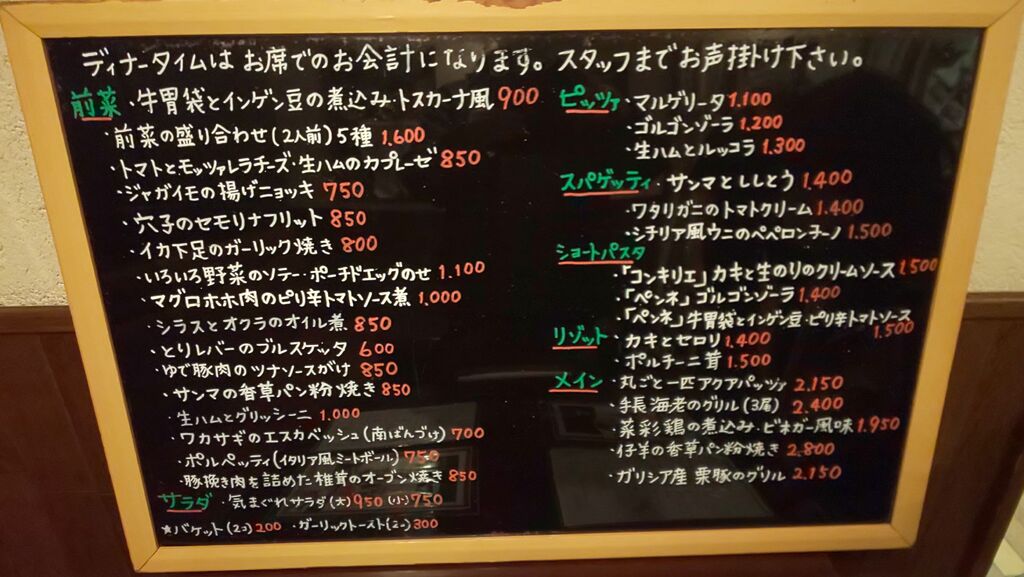 ディナータイムは お席でのお会計になります。スタッフまでお声掛け下さい。
前菜・牛胃袋とインゲン豆の煮込み・トスカーナ風 900
・前菜の盛り合わせ(2人前)5種 1.600
・トマトとモッツァレラチーズ・生ハムのカプレーゼ 850
・ジャガイモの揚げニョッキ 750
・穴子のセモリナフリット 850
・イカ下足のガーリック焼き 800
・いろいろ野菜のソテー・ポーチドエッグのせ 1.100
・マグロホホ肉のピリ辛トマトソース煮 1.000
・シラスとオクラのオイル煮 850
・とりレバーのブルスケッタ 600
・ゆで豚肉のツナソースがけ 850
・サンマの香草パン粉焼き 850
・生ハムとグリッシーニ 1.000
・ワカサギのエスカベッシュ(南ばんづけ) 700
・ポルペッティ(イタリア風ミートボール) 750
・豚挽き肉を詰めた椎茸のオーブン焼き 850
サラダ・気まぐれサラダ(大)950(小)750
★バケット(2コ)200 ・ガーリックトースト(2コ)300
ピッツァ・マルゲリータ 1.100
・ゴルゴンゾーラ 1.200
・生ハムとルッコラ 1.300
スパゲッティ・サンマとししとう 1.400
・ワタリガニのトマトクリーム 1.400
・シチリア風ウニのペペロンチーノ 1.500
ショートパスタ
・「コンキリエ」カキと生のりのクリームソース 1.500
・「ペンネ」ゴルゴンゾーラ 1.400
・「ペンネ」牛胃袋とインゲン豆・ピリ辛トマトソース
1.500
リゾット・カキとセロリ 1.400
・ポルチーニ茸 1.500
メイン・丸ごと一匹アクアパッツァ 2.150
・手長海老のグリル(3尾) 2.400
・菜彩鶏の煮込み・ビネガー風味 1.950
・仔羊の香草パン粉焼き 2.800
・ガリシア産 栗豚のグリル 2.150